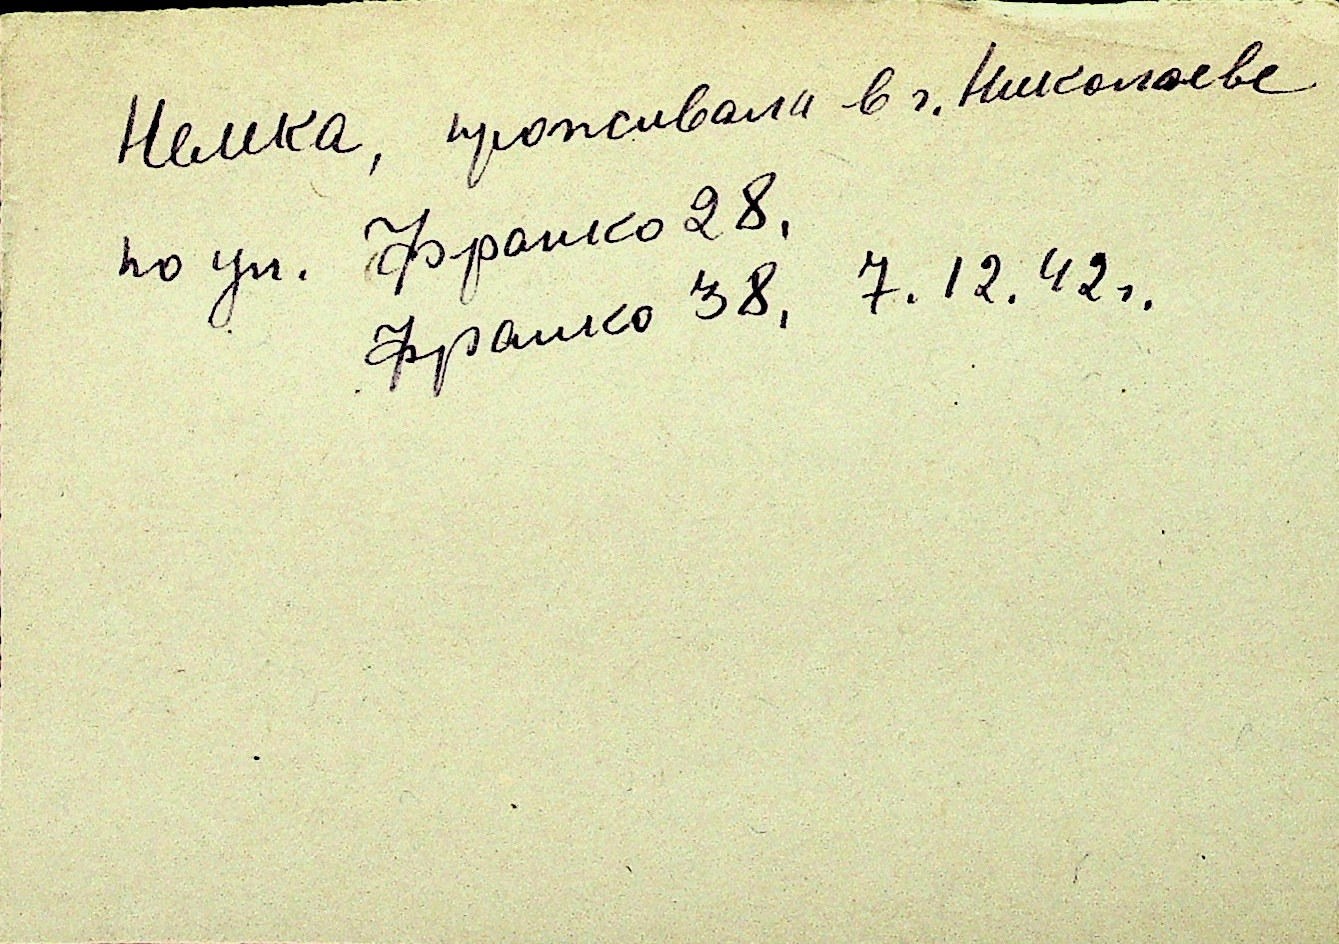 Немка, проживали в г. Николаеве
по ул. Франко 28,
Франко 38, 7.12.42г.